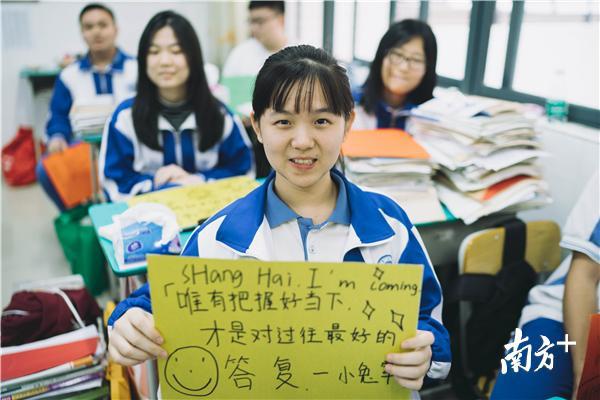 sHang Hai. I'm coming
「唯有把握好当下.
才是对过往最好的
答复. —小兔
南方+